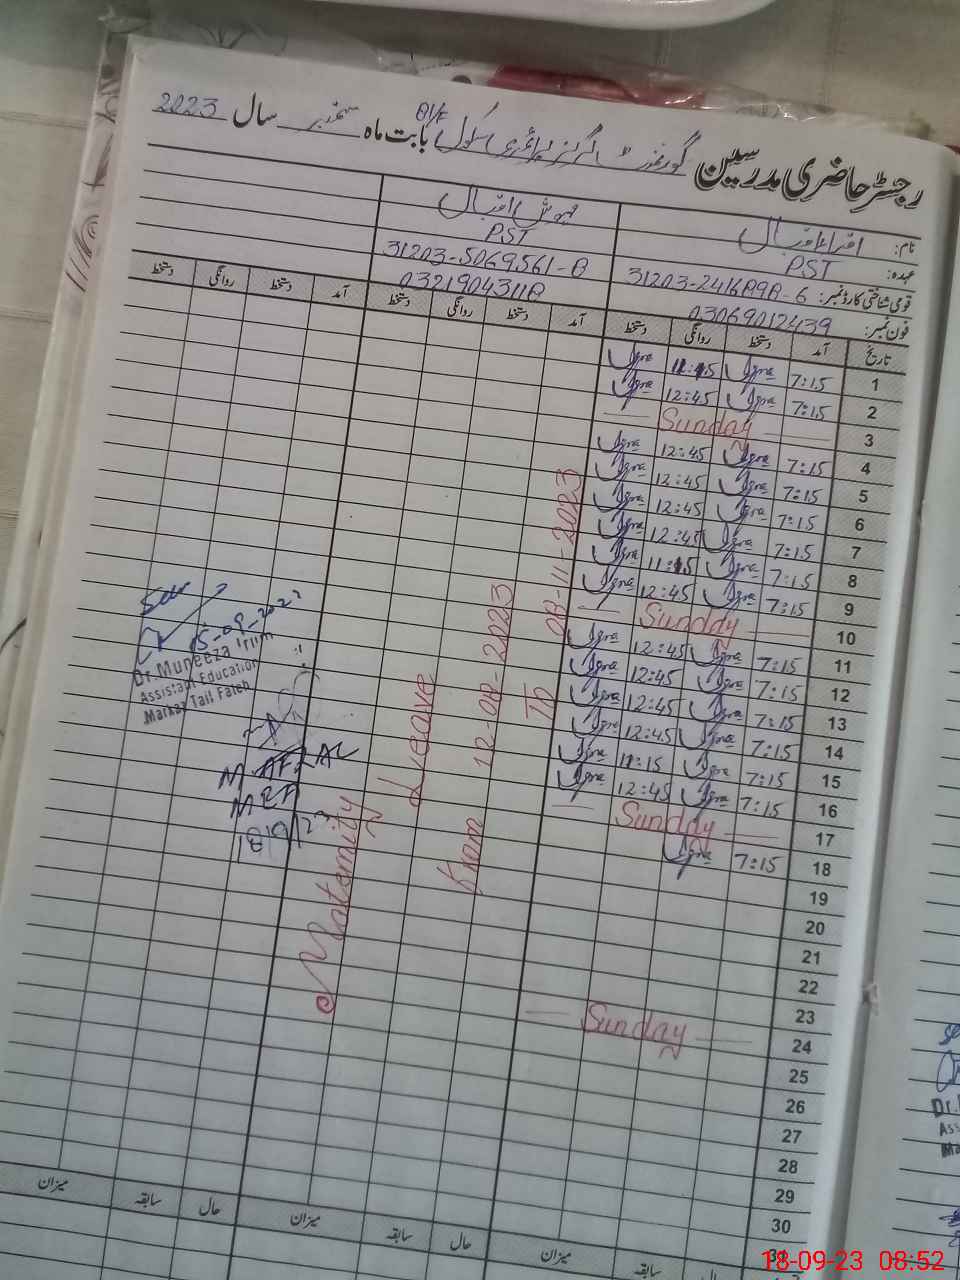 رجسٹر حاضری مدرسین گورنمنٹ گرلز پرائمری سکول بابت ماہ ستمبر سال 2023
نام: اقراء اقبال مہوش اقبال
عہدہ: PST PST
قومی شناختی کارڈ نمبر: 31203-5069561-8
فون نمبر: 03069012439 03219043118
تاریخ آمد دستخط روانگی دستخط آمد دستخط روانگی دستخط آمد دستخط روانگی دستخط
1 7:15 Iqra Iqra
2 7:15 Iqra 12:45 Iqra
3 Sunday
4 7:15 Iqra 12:45 Iqra
5 7:15 Iqra 12:45 Iqra
6 7:15 Iqra 12:45 Iqra
7 7:15 Iqra 12:45 Iqra
8 7:15 Iqra 11:15 Iqra
9 7:15 Iqra 12:45 Iqra
10 Sunday
11 7:15 Iqra 12:45 Iqra
12 7:15 Iqra 12:45 Iqra
13 7:15 Iqra 12:45 Iqra
14 7:15 Iqra 12:45 Iqra
15 7:15 Iqra 11:15 Iqra
16 7:15 Iqra 12:45 Iqra
17 Sunday
18 7:15 Iqra
19
20
21
22
23
24 Sunday
25
26
27
28
29
30
31
Maternity
Leave
From 12-08-2023
To 08-11-2023
Seen
Dr. Muneeza Irum
Assistant Education
Markaz Tail Faleh
MEA
18/9/23
حال سابقہ میزان حال سابقہ میزان حال سابقہ میزان
18-09-23 08:52